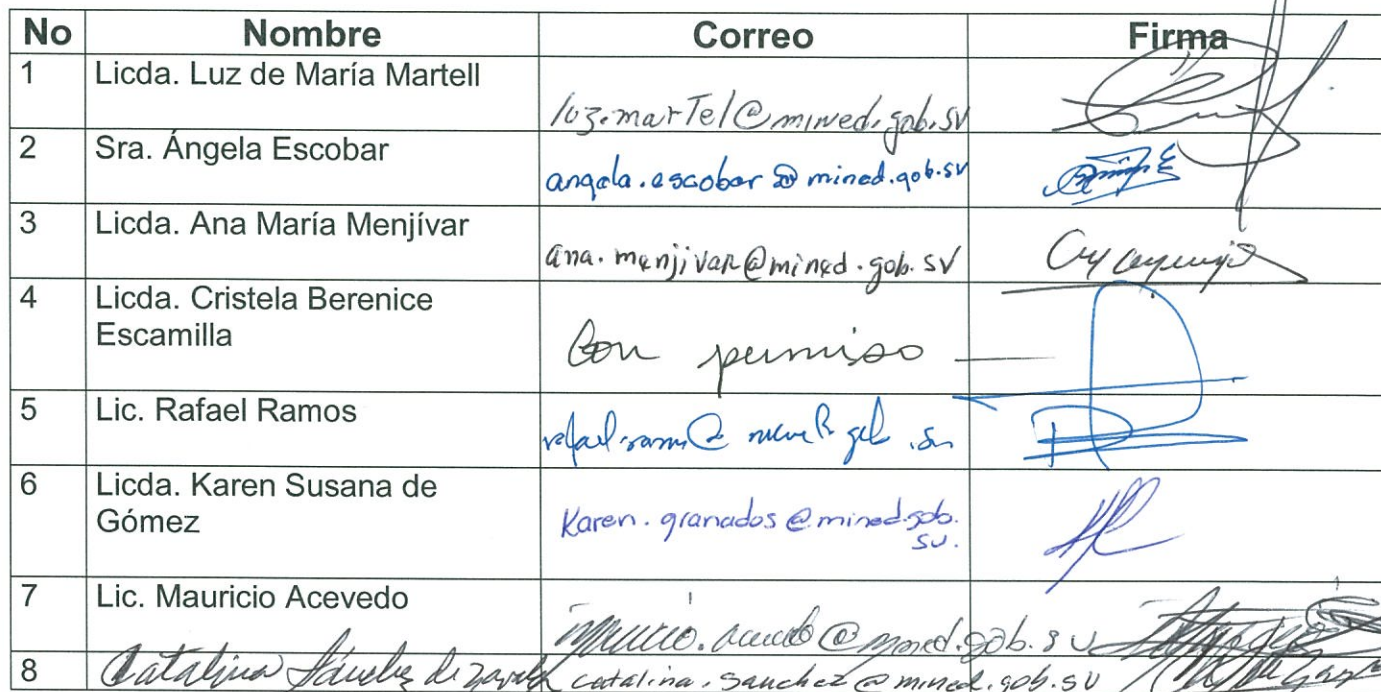 No Nombre Correo Firma
1 Licda. Luz de María Martell
luz.martel@mined.gob.sv
2 Sra. Ángela Escobar
angela.escobar@mined.gob.sv
3 Licda. Ana María Menjívar
ana.menjivar@mined.gob.sv
4 Licda. Cristela Berenice
Escamilla
Con permiso
5 Lic. Rafael Ramos
6 Licda. Karen Susana de
Gómez
Karen.granados@mined.gob.
sv.
7 Lic. Mauricio Acevedo
mauricio.acevedo@mined.gob.sv
8 Catalina Sánchez de catalina.sanchez@mined.gob.sv